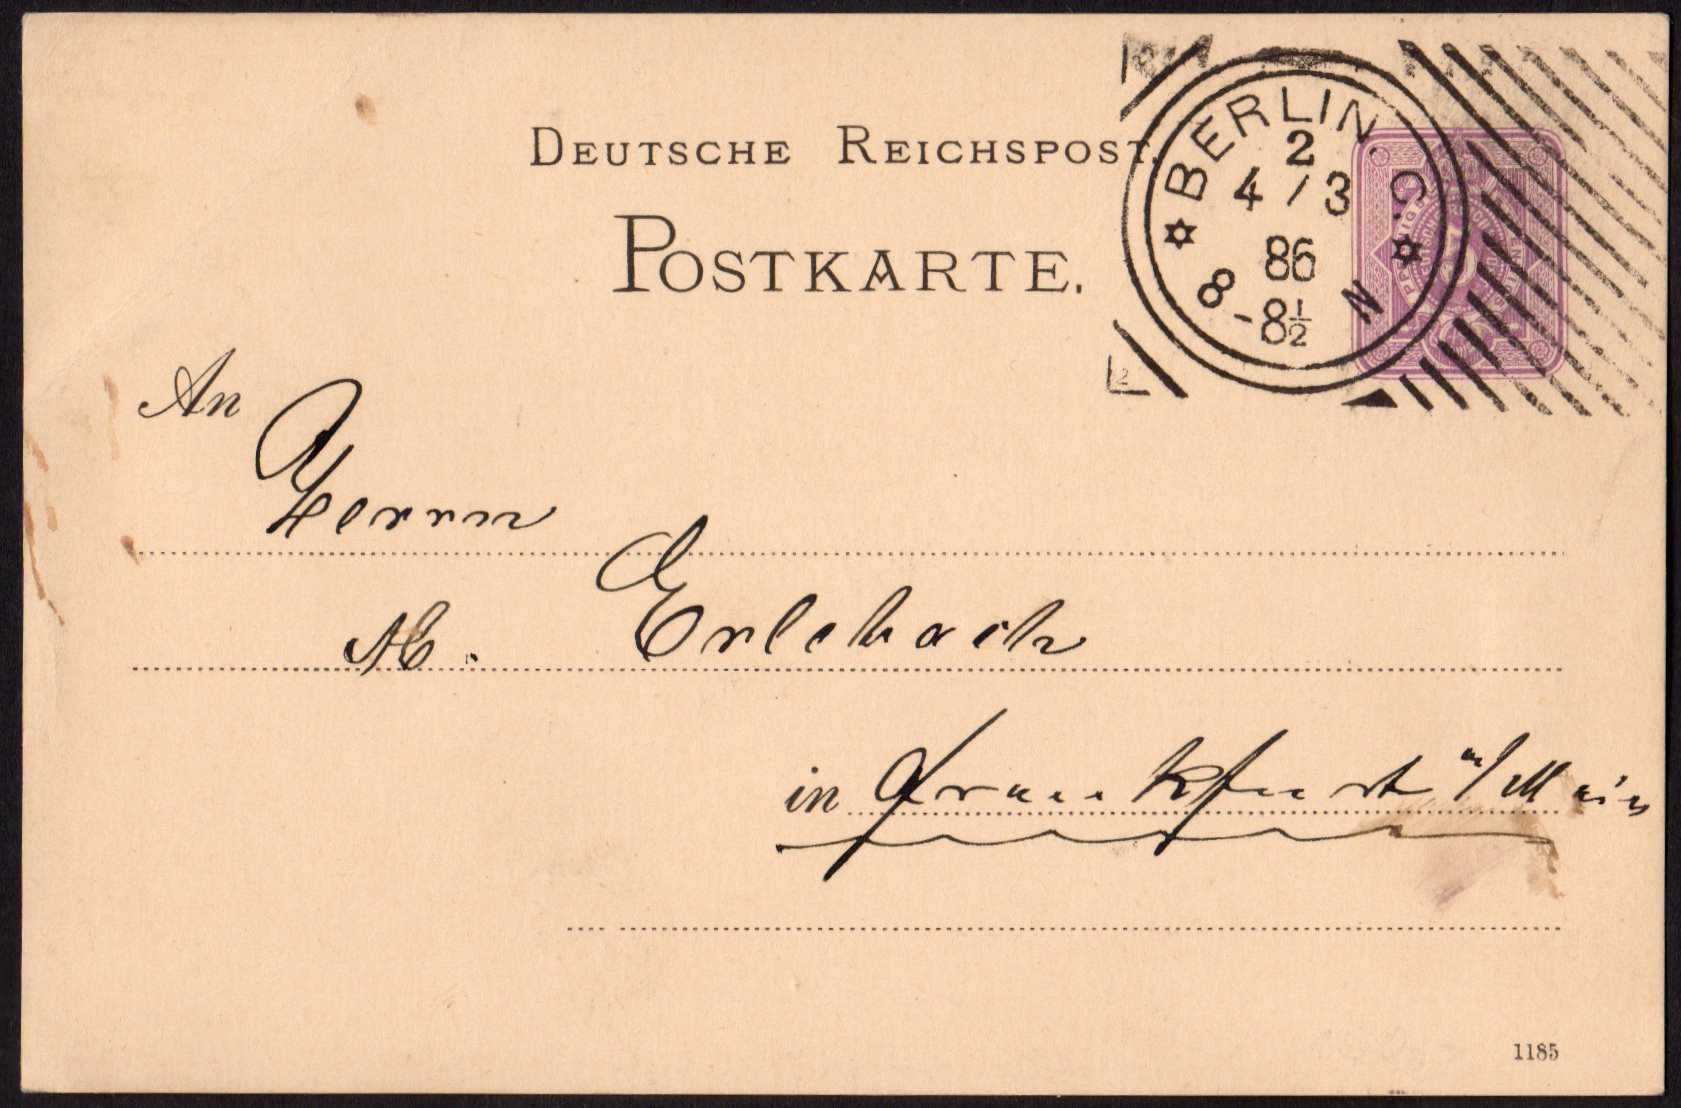 DEUTSCHE REICHSPOST.
POSTKARTE.
BERLIN. C.
2
4 / 3
86
8 - 8½ N
An
Herrn
M. Erlebach
in Frankfurt a/Main
1185